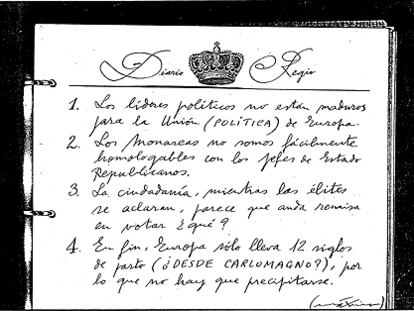 Diario Regio
1. Los líderes políticos no están maduros
para la Unión (POLÍTICA) de Europa.
2. Los Monarcas no somos fácilmente
homologables con los Jefes de Estado
Republicanos.
3. La ciudadanía, mientras las élites
se aclaran, parece que anda remisa
en votar ¿qué?
4. En fin, Europa sólo lleva 12 siglos
de parto (¿DESDE CARLOMAGNO?), por
lo que no hay que precipitarse.
(máximo)